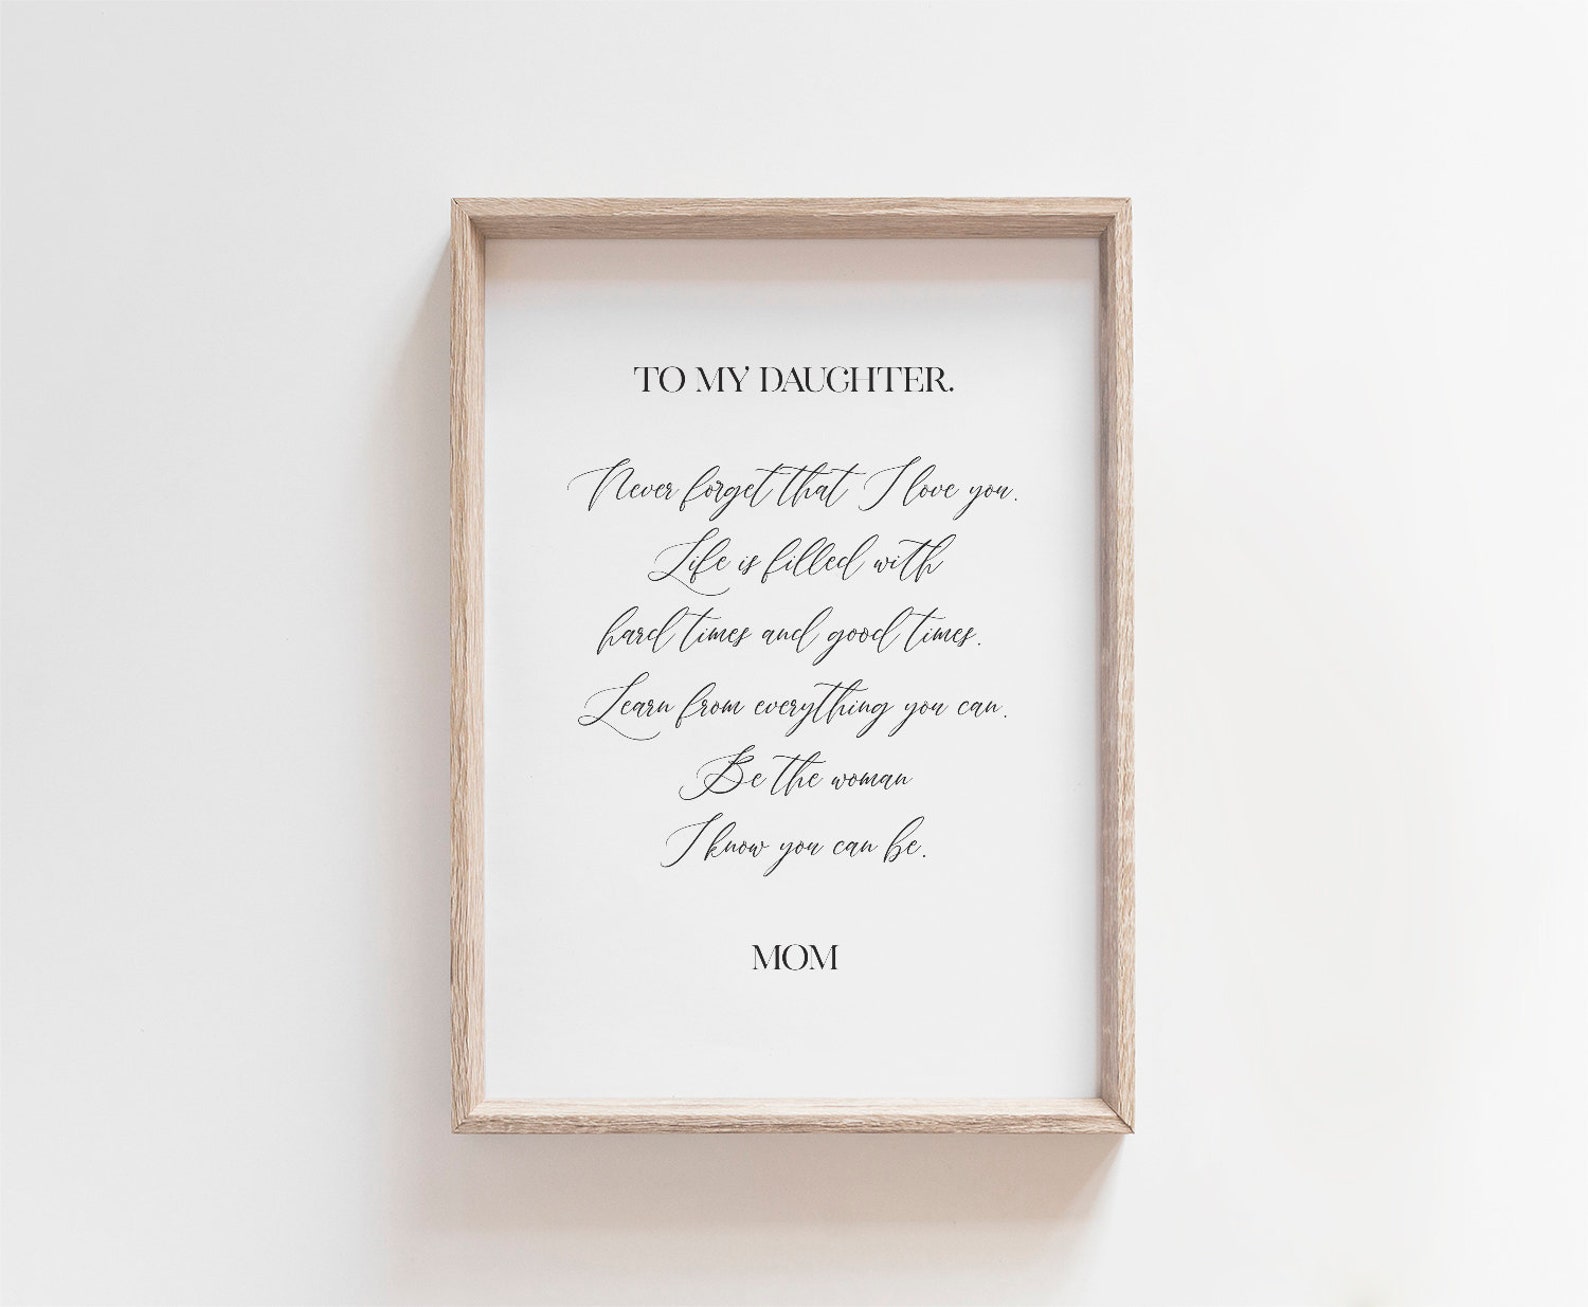 TO MY DAUGHTER.
Never forget that I love you.
Life is filled with
hard times and good times.
Learn from everything you can.
Be the woman
I know you can be.
MOM